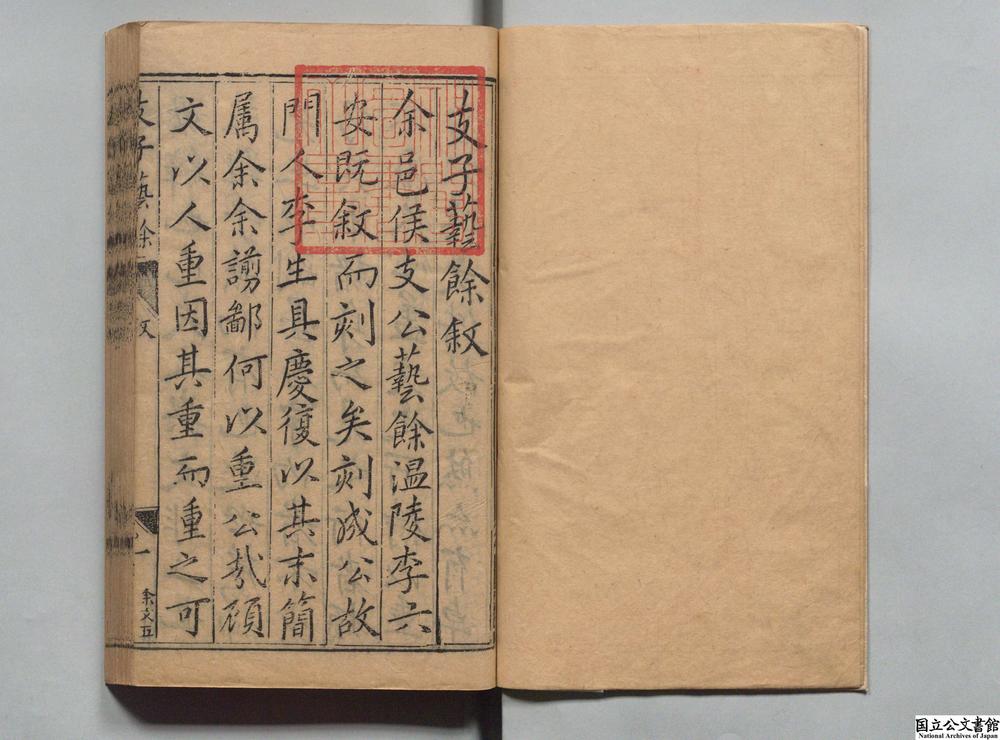 支子藝餘敘
余邑侯支公藝餘温陵李六
安既敘而刻之矣刻成公故
門人李生具慶復以其末簡
属余余謭鄙何以重公哉顧
文以人重因其重而重之可
支子藝餘
敘
一
余文五
国立公文書館
National Archives of Japan